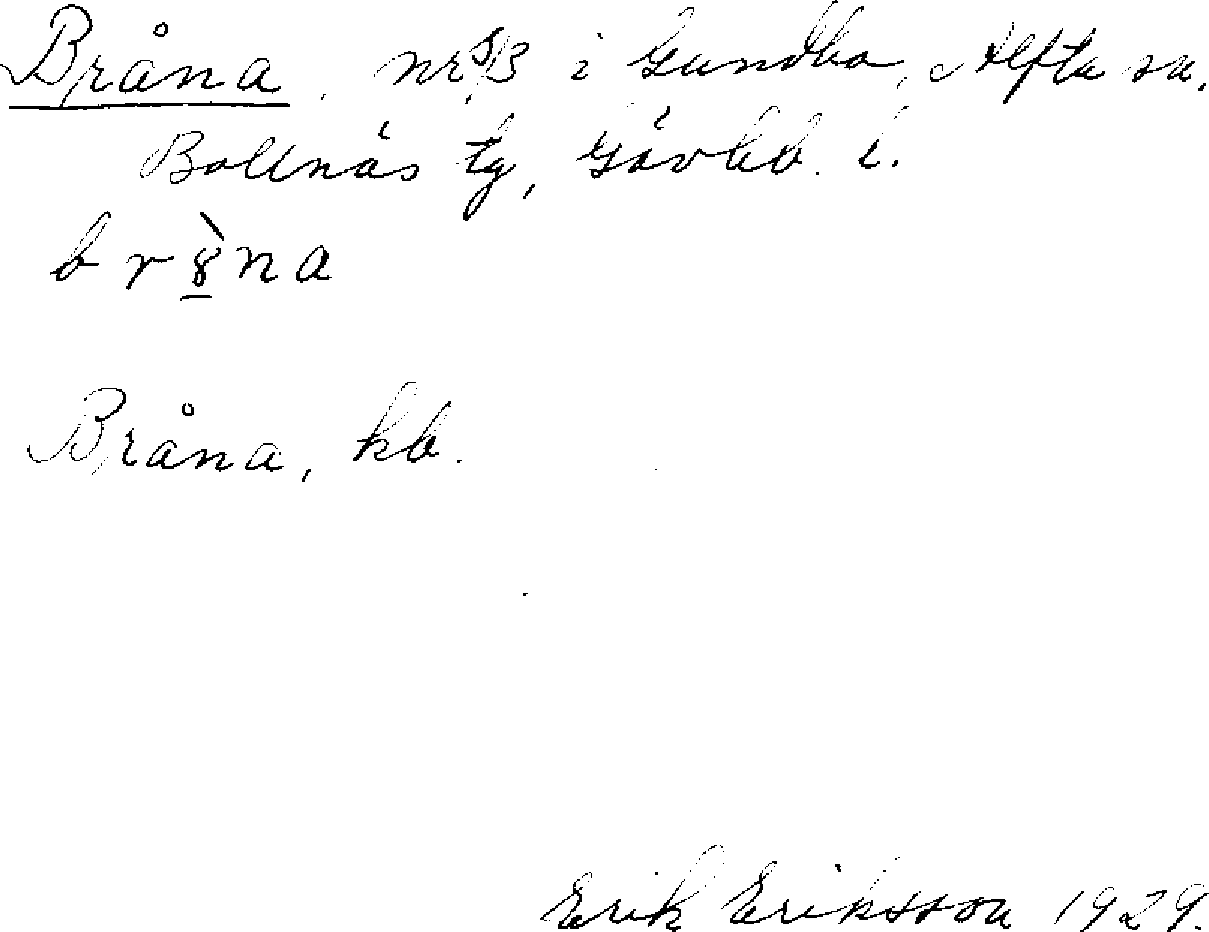 Bråna, nr 5/3 i Gundbo, Alfta sn.
Bollnäs tg, Gävleb. l.
br8̲̀na
Bråna, kb.
Erik Eriksson 1929.